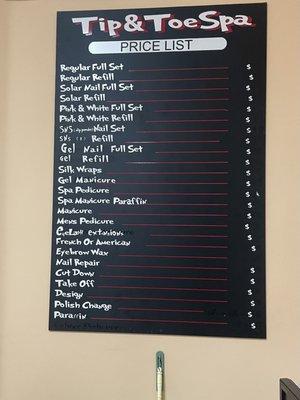 Tip&ToeSpa
PRICE LIST
Regular Full Set $
Regular Refill $
Solar Nail Full Set $
Solar Refill $
Pink & White Full Set $
Pink & White Refill $
SNS Nail Set $
SNS Refill $
Gel Nail Full Set $
Gel Refill $
Silk Wraps $
Gel Manicure $
Spa Pedicure $
Spa Manicure Paraffin
Manicure $
Mens Pedicure $
Eyelash extensions $
French Or American
Eyebrow Wax $
Nail Repair
Cut Down $
Take Off $
Design $
Polish Change $
Paraffin $
$